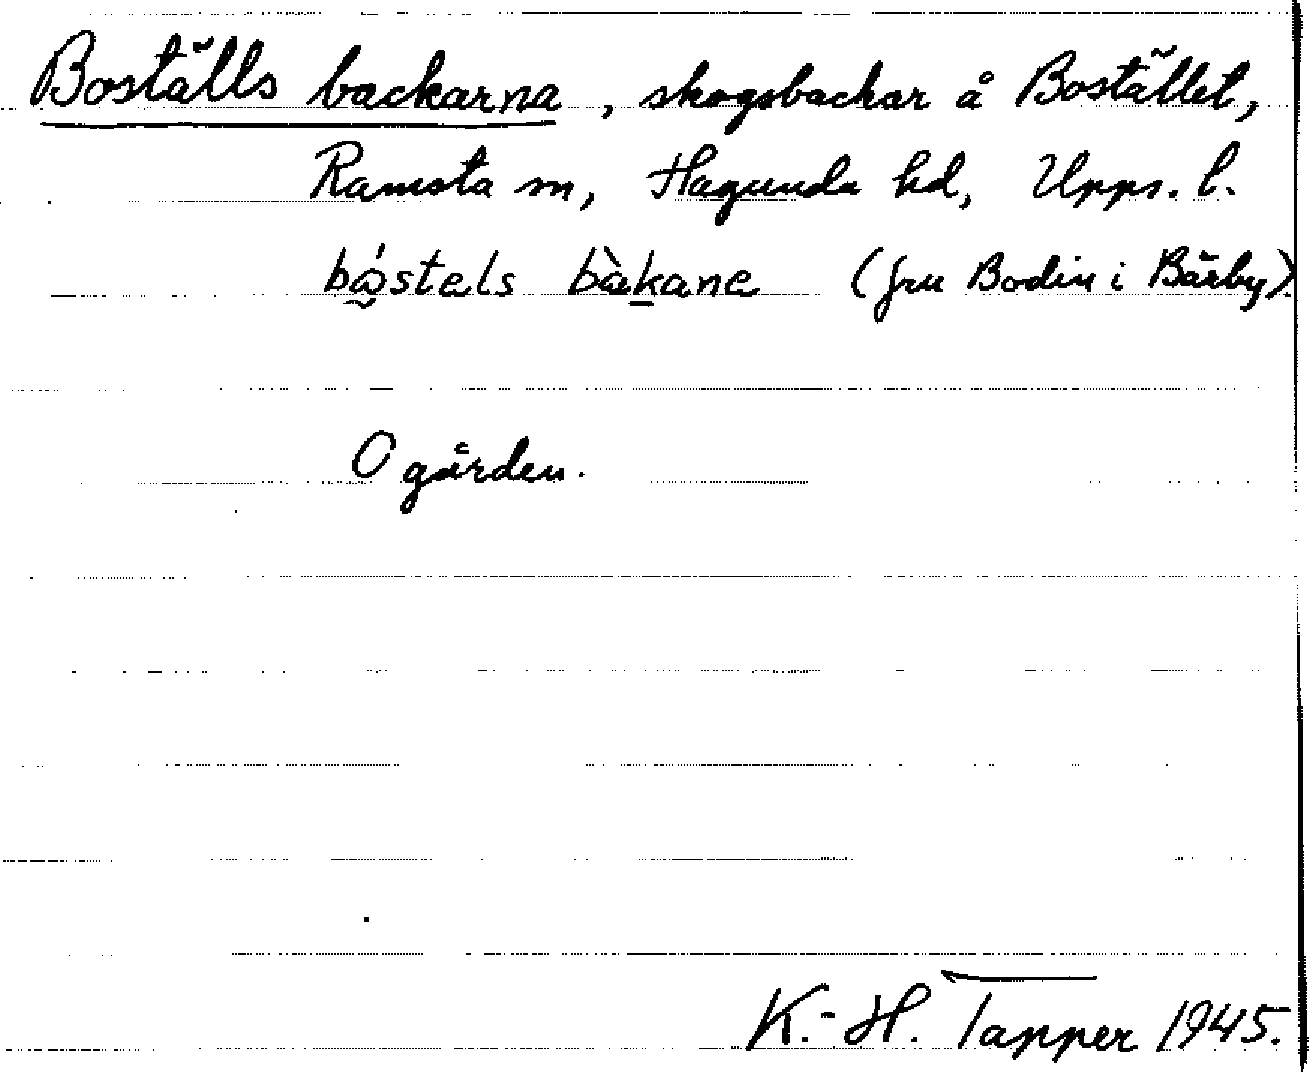 Boställs backarna, skogsbackar å Bostället,
Ramsta sn, Hagunda hd, Upps. l.
bǫ́stels bàk̲ane (fru Bodin i Bärby).
O gården.
K.-H. Tapper 1945.